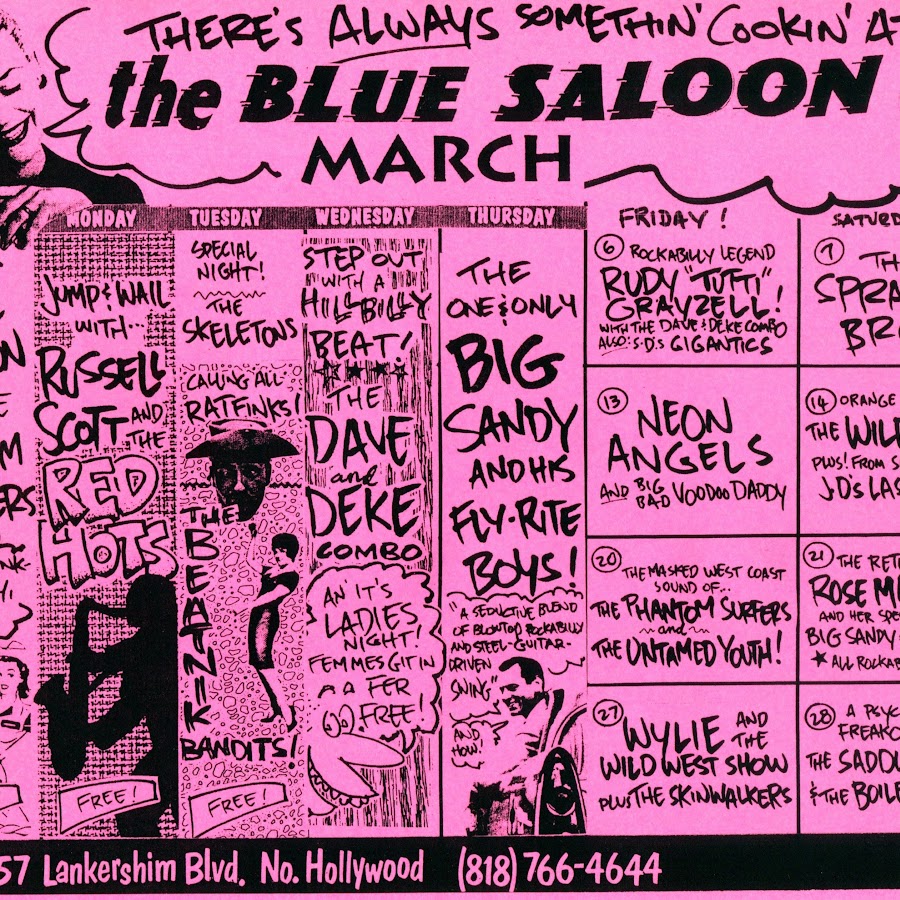 THERE'S ALWAYS SOMETHIN' COOKIN' AT
the BLUE SALOON
MARCH
MONDAY
JUMP & WAIL
WITH...
RUSSELL
SCOTT AND
THE
RED
HOTS
FREE!
TUESDAY
SPECIAL
NIGHT!
THE
SKELETONS
CALLING ALL
RATFINKS!
THE
BEATNIK
BANDITS!
FREE!
WEDNESDAY
STEP OUT
WITH A
HILLBILLY
BEAT!
THE
DAVE
and
DEKE
COMBO
AN' IT'S
LADIES
NIGHT!
FEMMES GIT IN
FER
FREE!
THURSDAY
THE
ONE & ONLY
BIG
SANDY
AND HIS
FLY-RITE
BOYS!
"A SEDUCTIVE BLEND
OF BLOWTOP ROCKABILLY
AND STEEL-GUITAR-
DRIVEN
SWING"
AND
HOW!
FRIDAY!
6 ROCKABILLY LEGEND
RUDY "TUTTI"
GRAYZELL!
WITH THE DAVE & DEKE COMBO
ALSO: S.D.'S GIGANTICS
13 NEON
ANGELS
AND BIG
BAD VOODOO DADDY
20 THE MASKED WEST COAST
SOUND OF...
THE PHANTOM SURFERS
and
THE UNTAMED YOUTH!
27 WYLIE AND
THE
WILD WEST SHOW
PLUS THE SKINWALKERS
SATURD
7 TH
SPRA
BR
14 ORANGE
THE WILD
PLUS! FROM S
J.D'S LAS
21 THE RET
ROSE M
AND HER SPE
BIG SANDY
★ ALL ROCKAB
28 A PSYC
FREAKO
THE SADDL
& THE BOILE
57 Lankershim Blvd. No. Hollywood (818) 766-4644